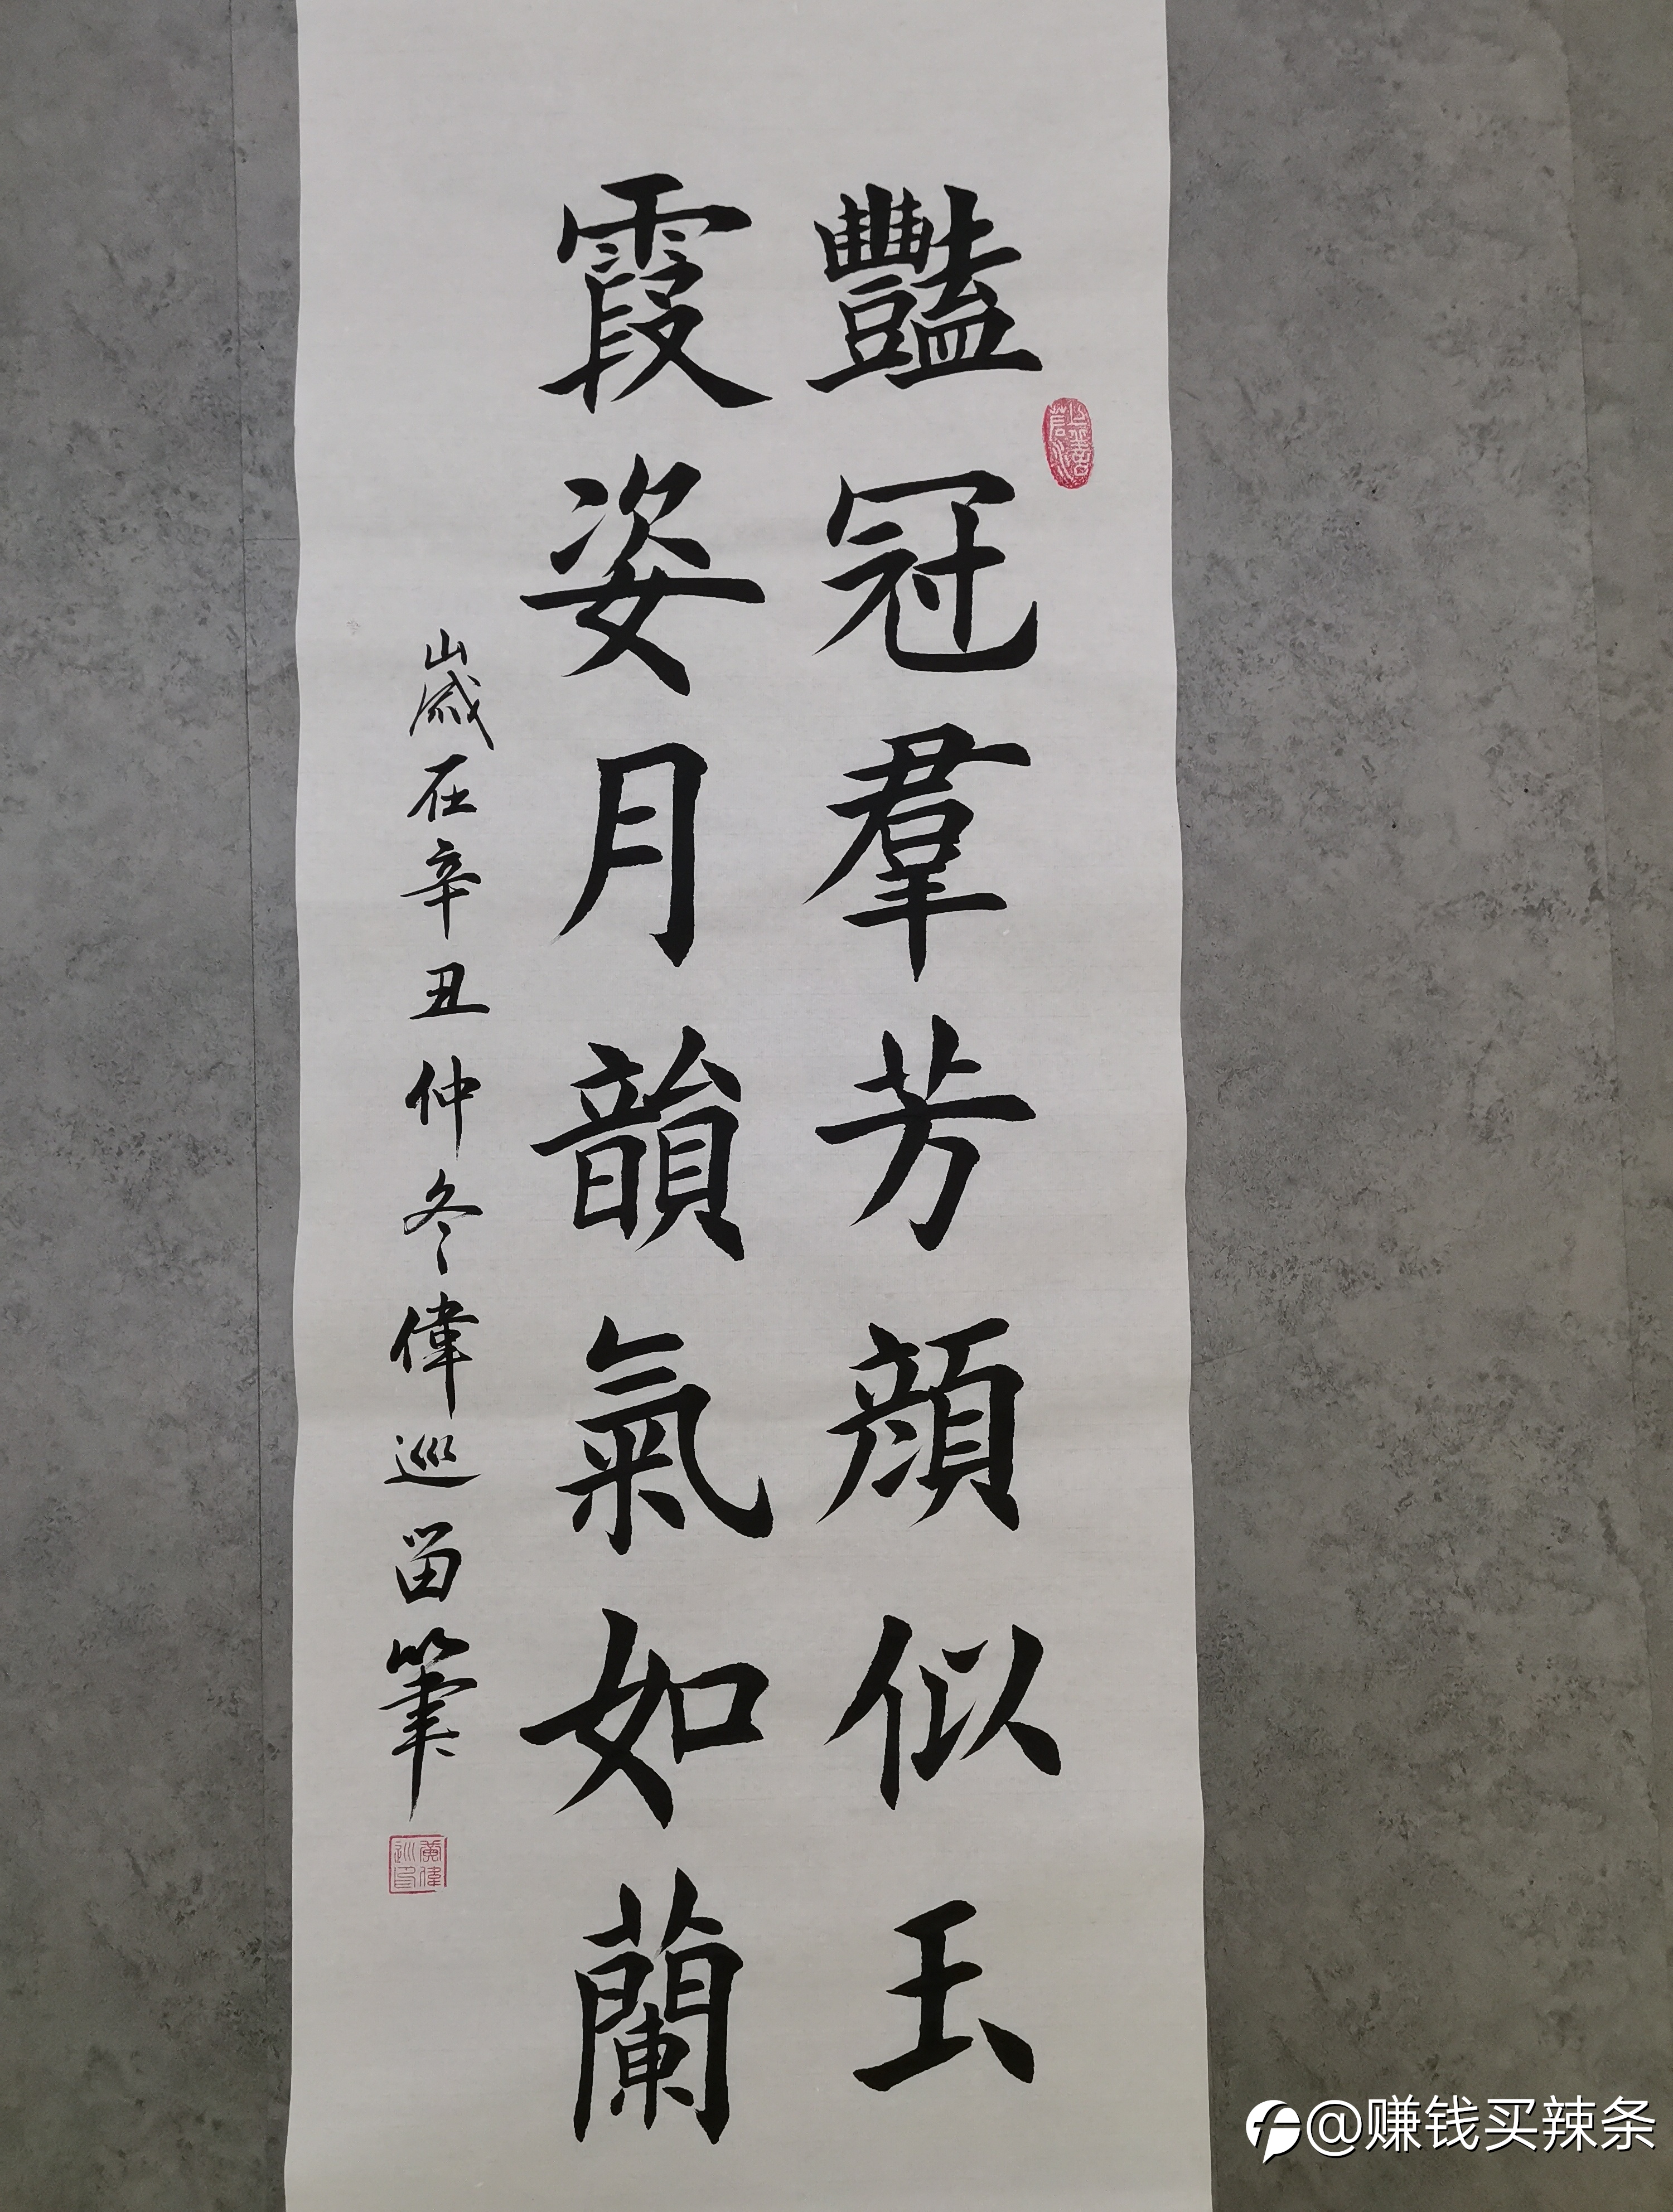 豔冠羣芳顔似玉
霞姿月韻氣如蘭
歲在辛丑仲冬偉巡留筆
黄偉巡印
@赚钱买辣条